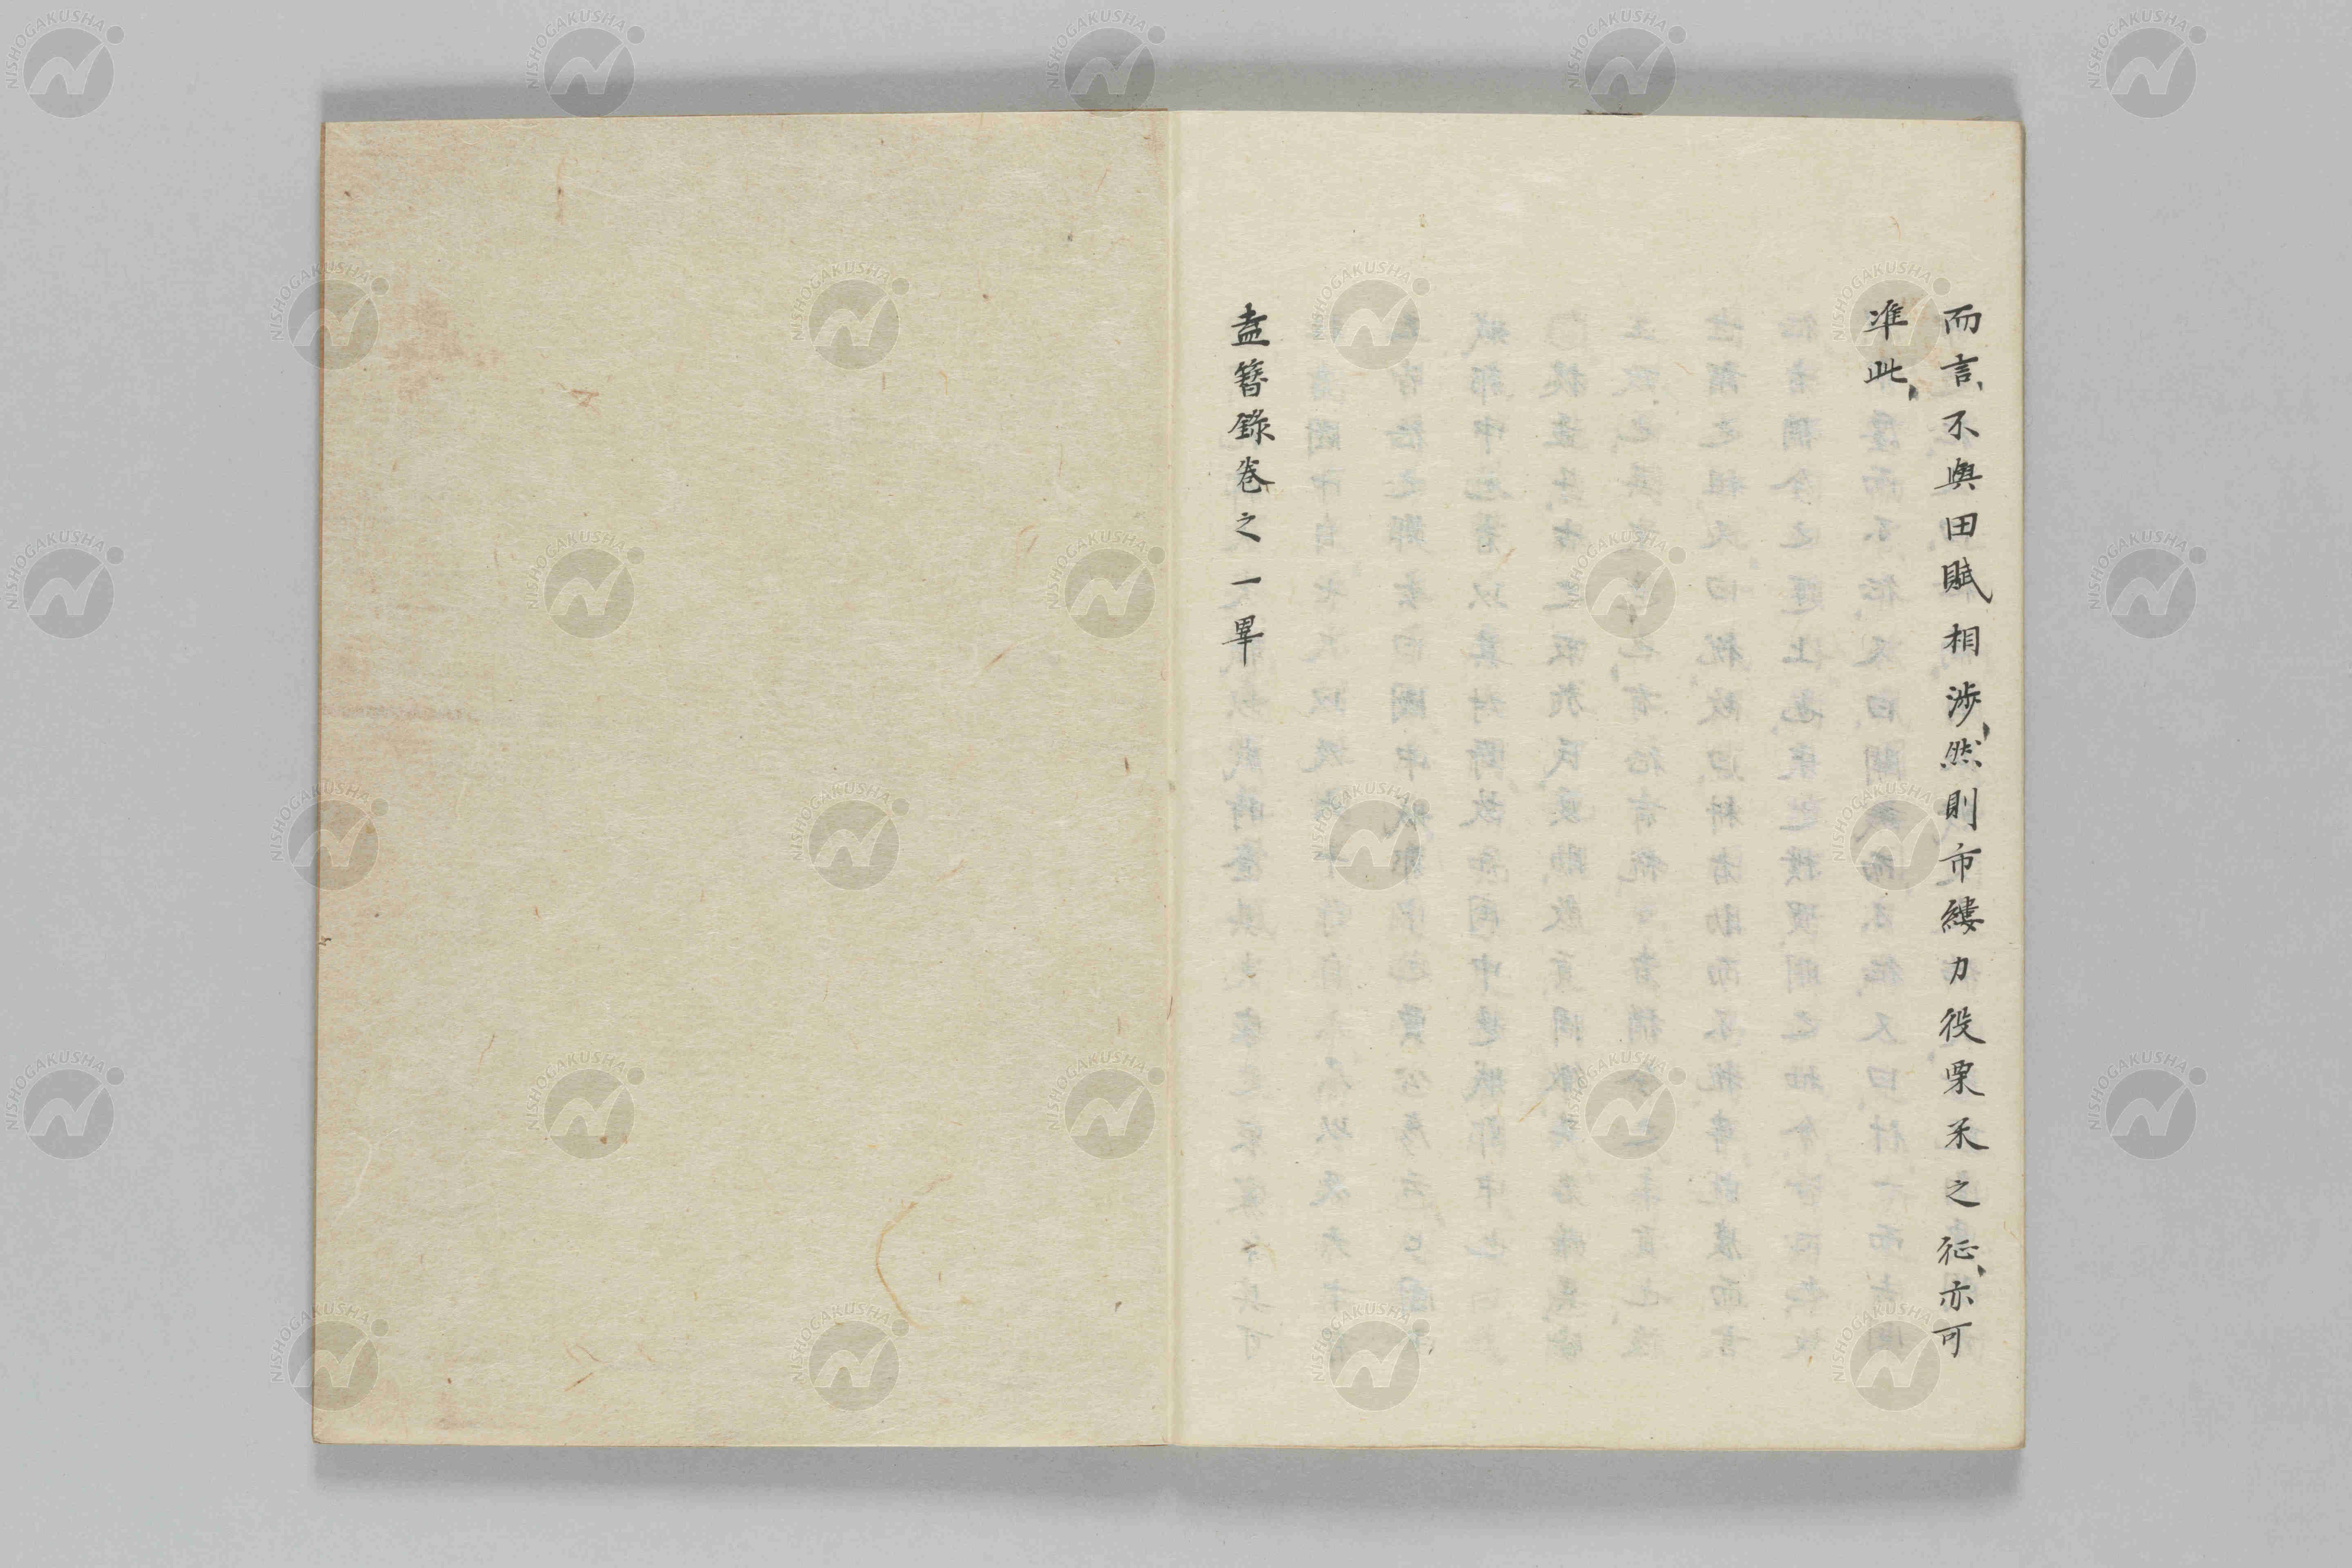 而言、不與田賦相渉、然則市縷力役栗米之征、亦可
準此、
盍簪錄卷之一畢